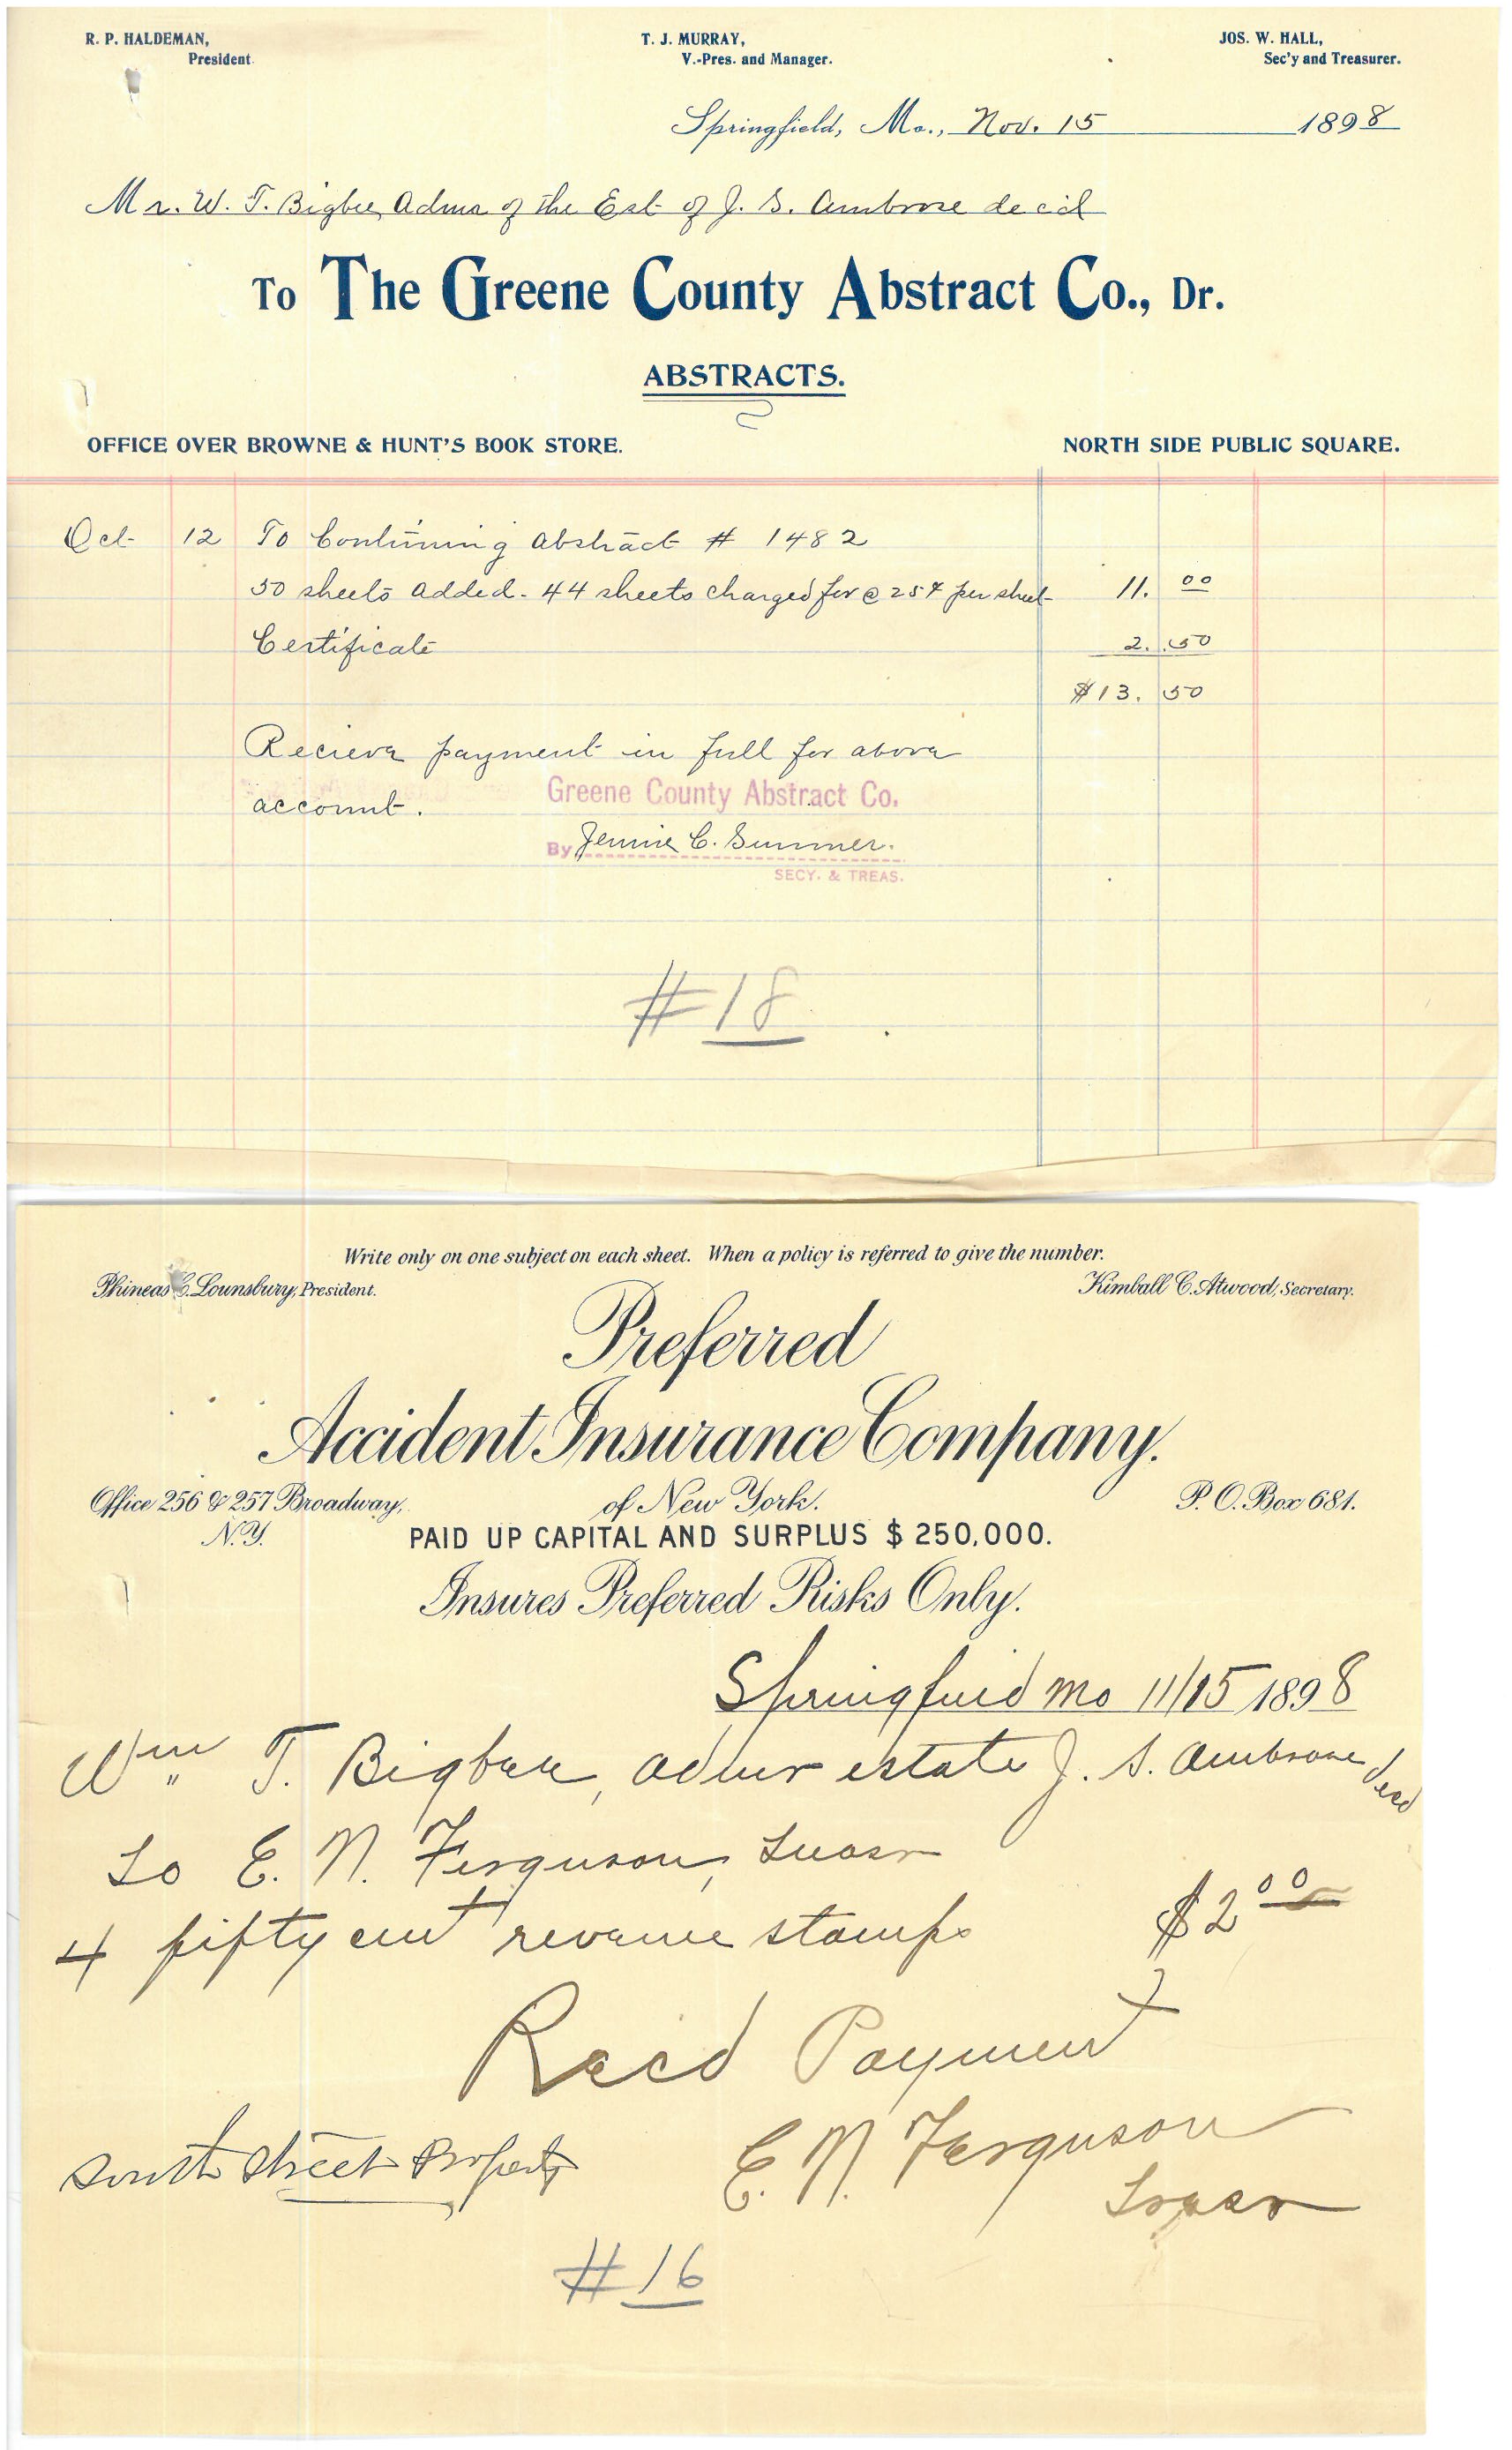 R. P. HALDEMAN, T. J. MURRAY, JOS. W. HALL,
President. V.-Pres. and Manager. Sec'y and Treasurer.
Springfield, Mo., Nov. 15 1898
Mr. W. T. Bigbee, Admr of the Est of J. S. Ambrose decd
To The Greene County Abstract Co., Dr.
ABSTRACTS.
OFFICE OVER BROWNE & HUNT'S BOOK STORE. NORTH SIDE PUBLIC SQUARE.
Oct 12 To Continuing Abstract # 1482
50 sheets added - 44 sheets charged for @ 25¢ per sheet 11. 00
Certificate 2. 50
$13. 50
Recieve payment in full for above
account.
Greene County Abstract Co.
By Jennie C. Summer.
SECY. & TREAS.
#18
Write only on one subject on each sheet. When a policy is referred to give the number.
Phineas C. Lounsbury, President. Kimball C. Atwood, Secretary.
Preferred
Accident Insurance Company.
Office 256 & 257 Broadway, of New York. P. O. Box 681.
N.Y. PAID UP CAPITAL AND SURPLUS $250,000.
Insures Preferred Risks Only.
Springfield Mo 11/15 1898
Wm T. Bigbee, admr estate J. S. Ambrose decd
To E. N. Ferguson,
4 fifty cent revenue stamps $2 00
Recd Payment
South Street Property E. N. Ferguson
#16